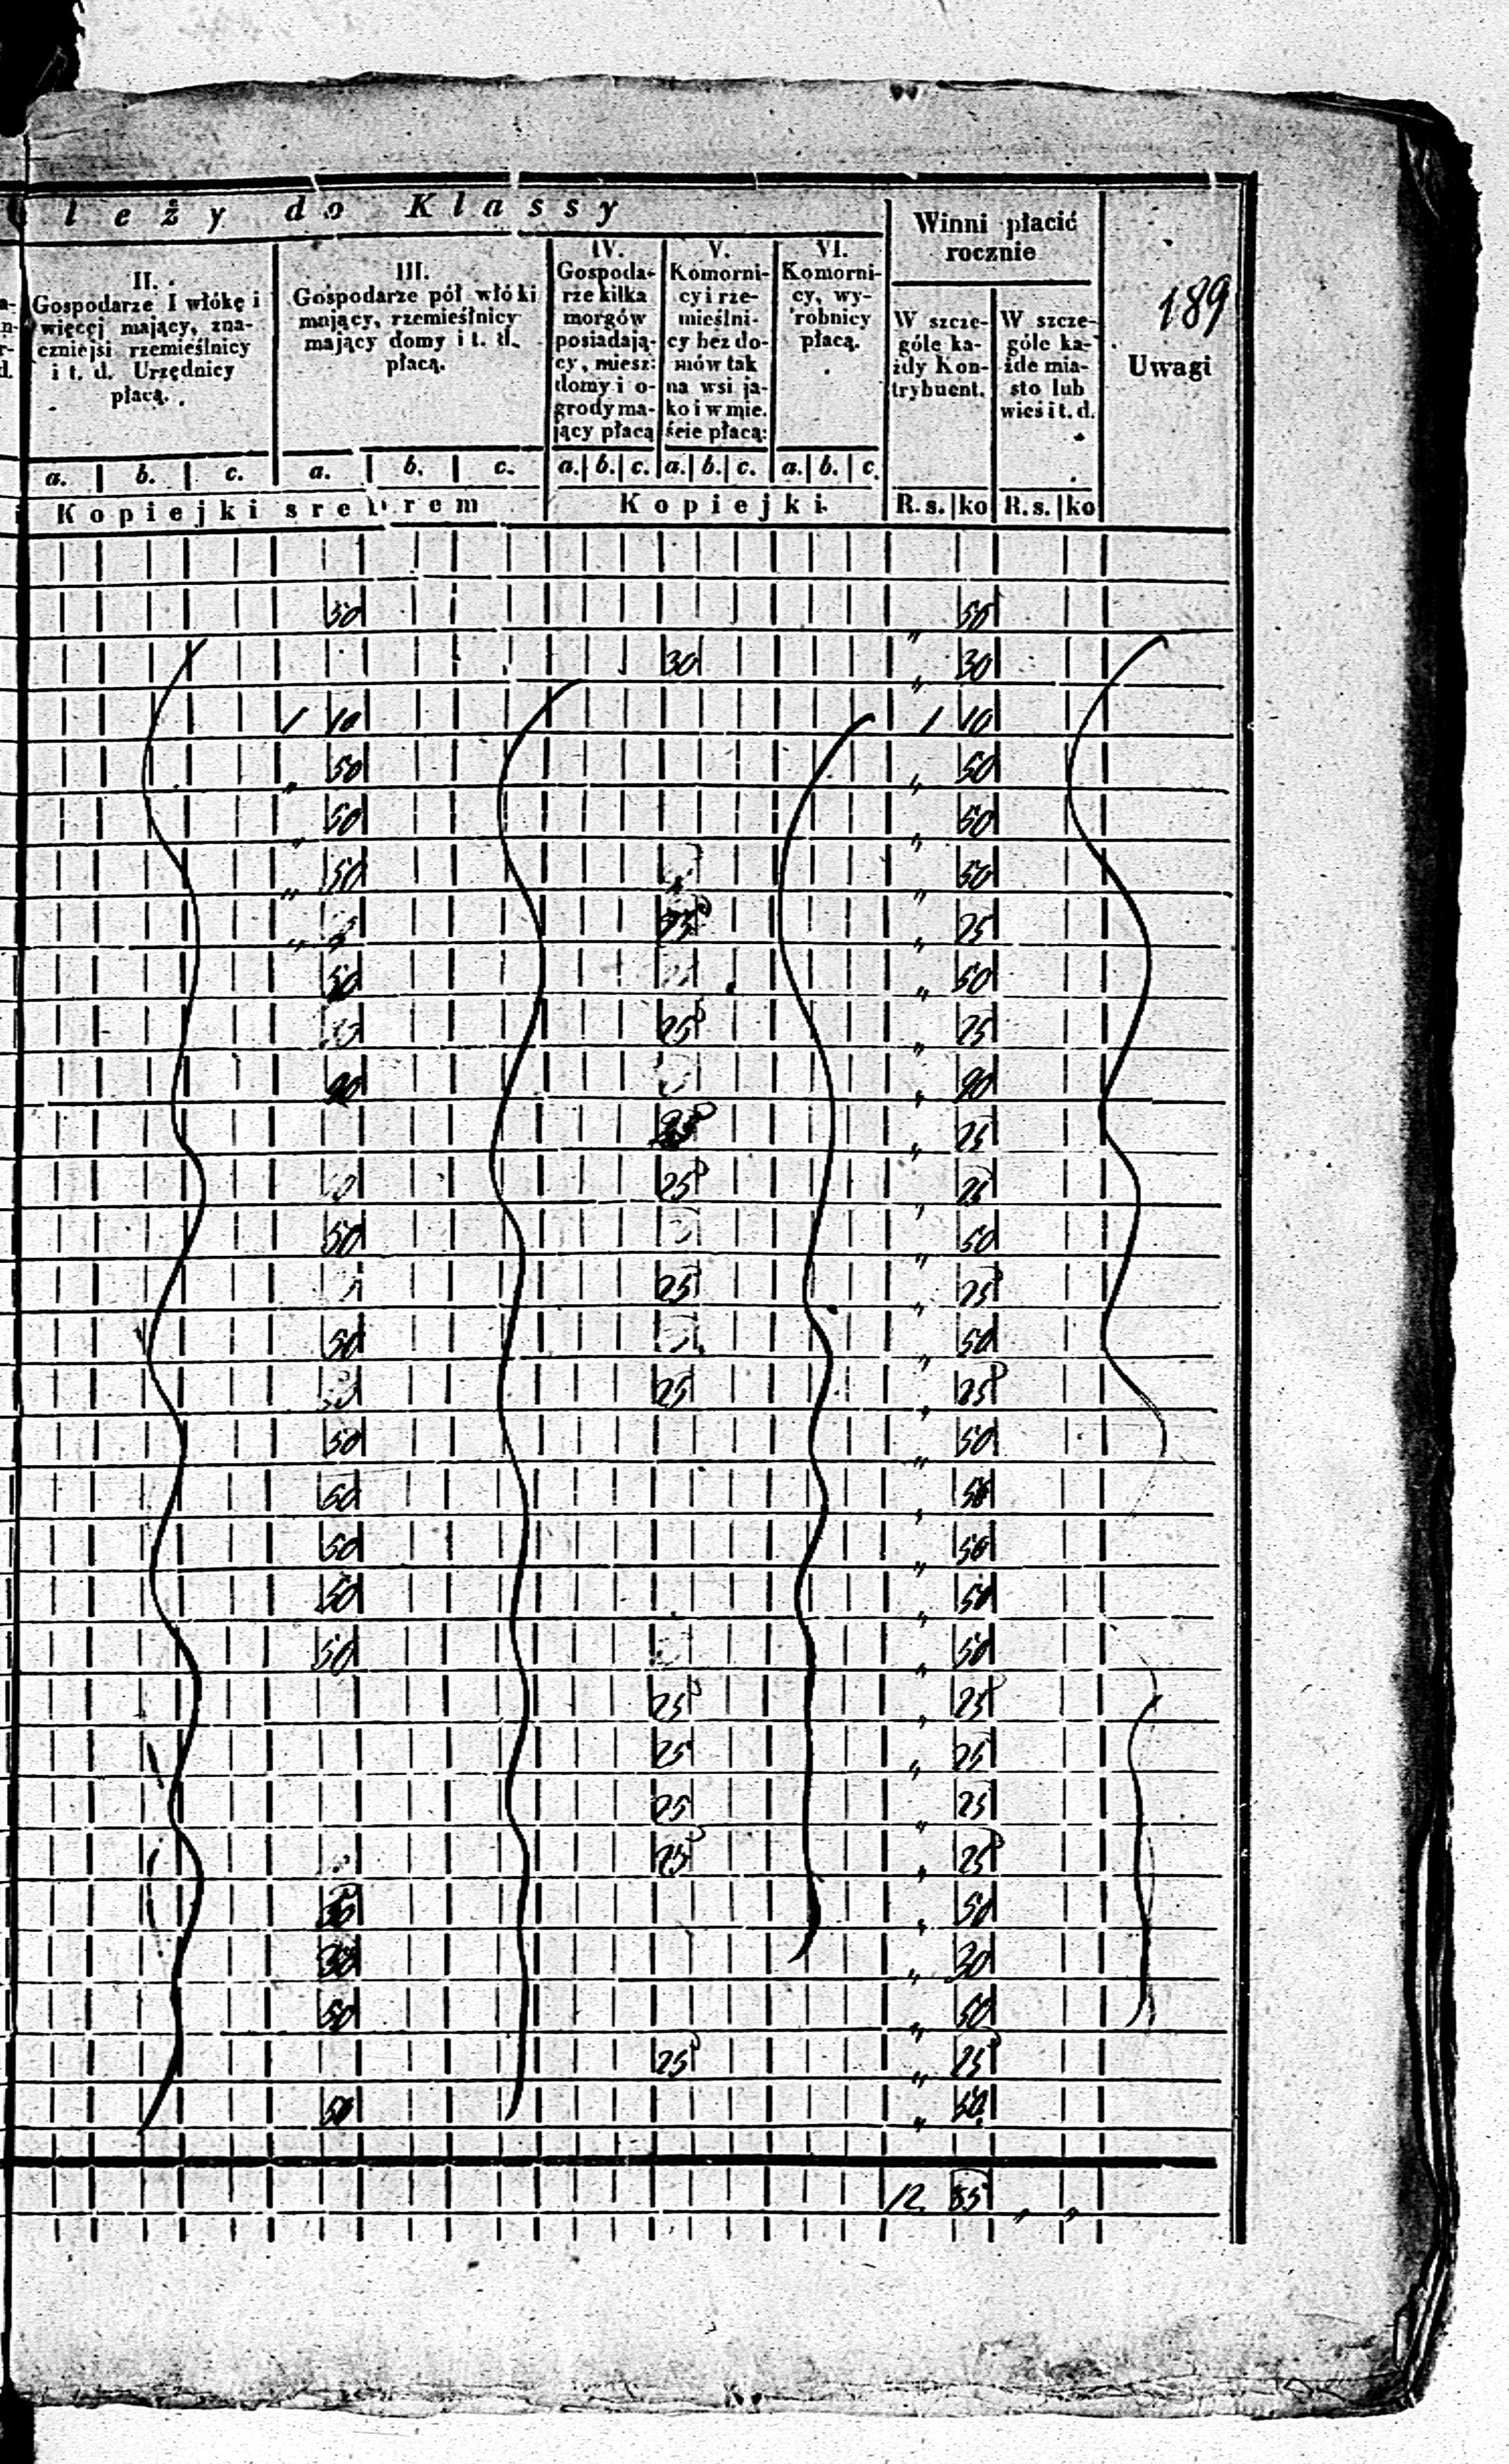 leży do Klassy
Winni płacić
rocznie
189
Uwagi
II.
Gospodarze I włókę i
więcej mający, zna-
czniejsi rzemieślnicy
i t. d. Urzędnicy
płacą.
III.
Gospodarze pół włóki
mający, rzemieślnicy
mający domy i t. d.
płacą.
IV.
Gospoda-
rze kilka
morgów
posiadają-
cy, miesz:
domy i o-
grody ma-
jący płacą
V.
Komorni-
cy i rze-
mieślni-
cy bez do-
mów tak
na wsi ja-
ko i w mie.
ście płacą:
VI.
Komorni-
cy, wy-
robnicy
płacą.
W szcze-
góle ka-
żdy Kon-
trybuent.
W szcze-
góle ka-
żde mia-
sto lub
wieś i t. d.
a. b. c. a. b. c. a. b. c. a. b. c. a. b. c.
Kopiejki srebrem Kopiejki. R. s. ko R. s. ko
50 50
30 " 30
1 10 1 10
" 50 " 50
" 50 " 50
" 50 " 50
" 25
50 " 50
25 " 25
90 " 90
" 25
25 " 25
50 " 50
25 " 25
50 " 50
25 " 25
50 " 50
50 " 50
50 " 50
50 " 50
50 " 50
25 " 25
25 " 25
25 " 25
25 " 25
" 50
30 " 30
50 " 50
25 " 25
50 " 50
12 85 " "